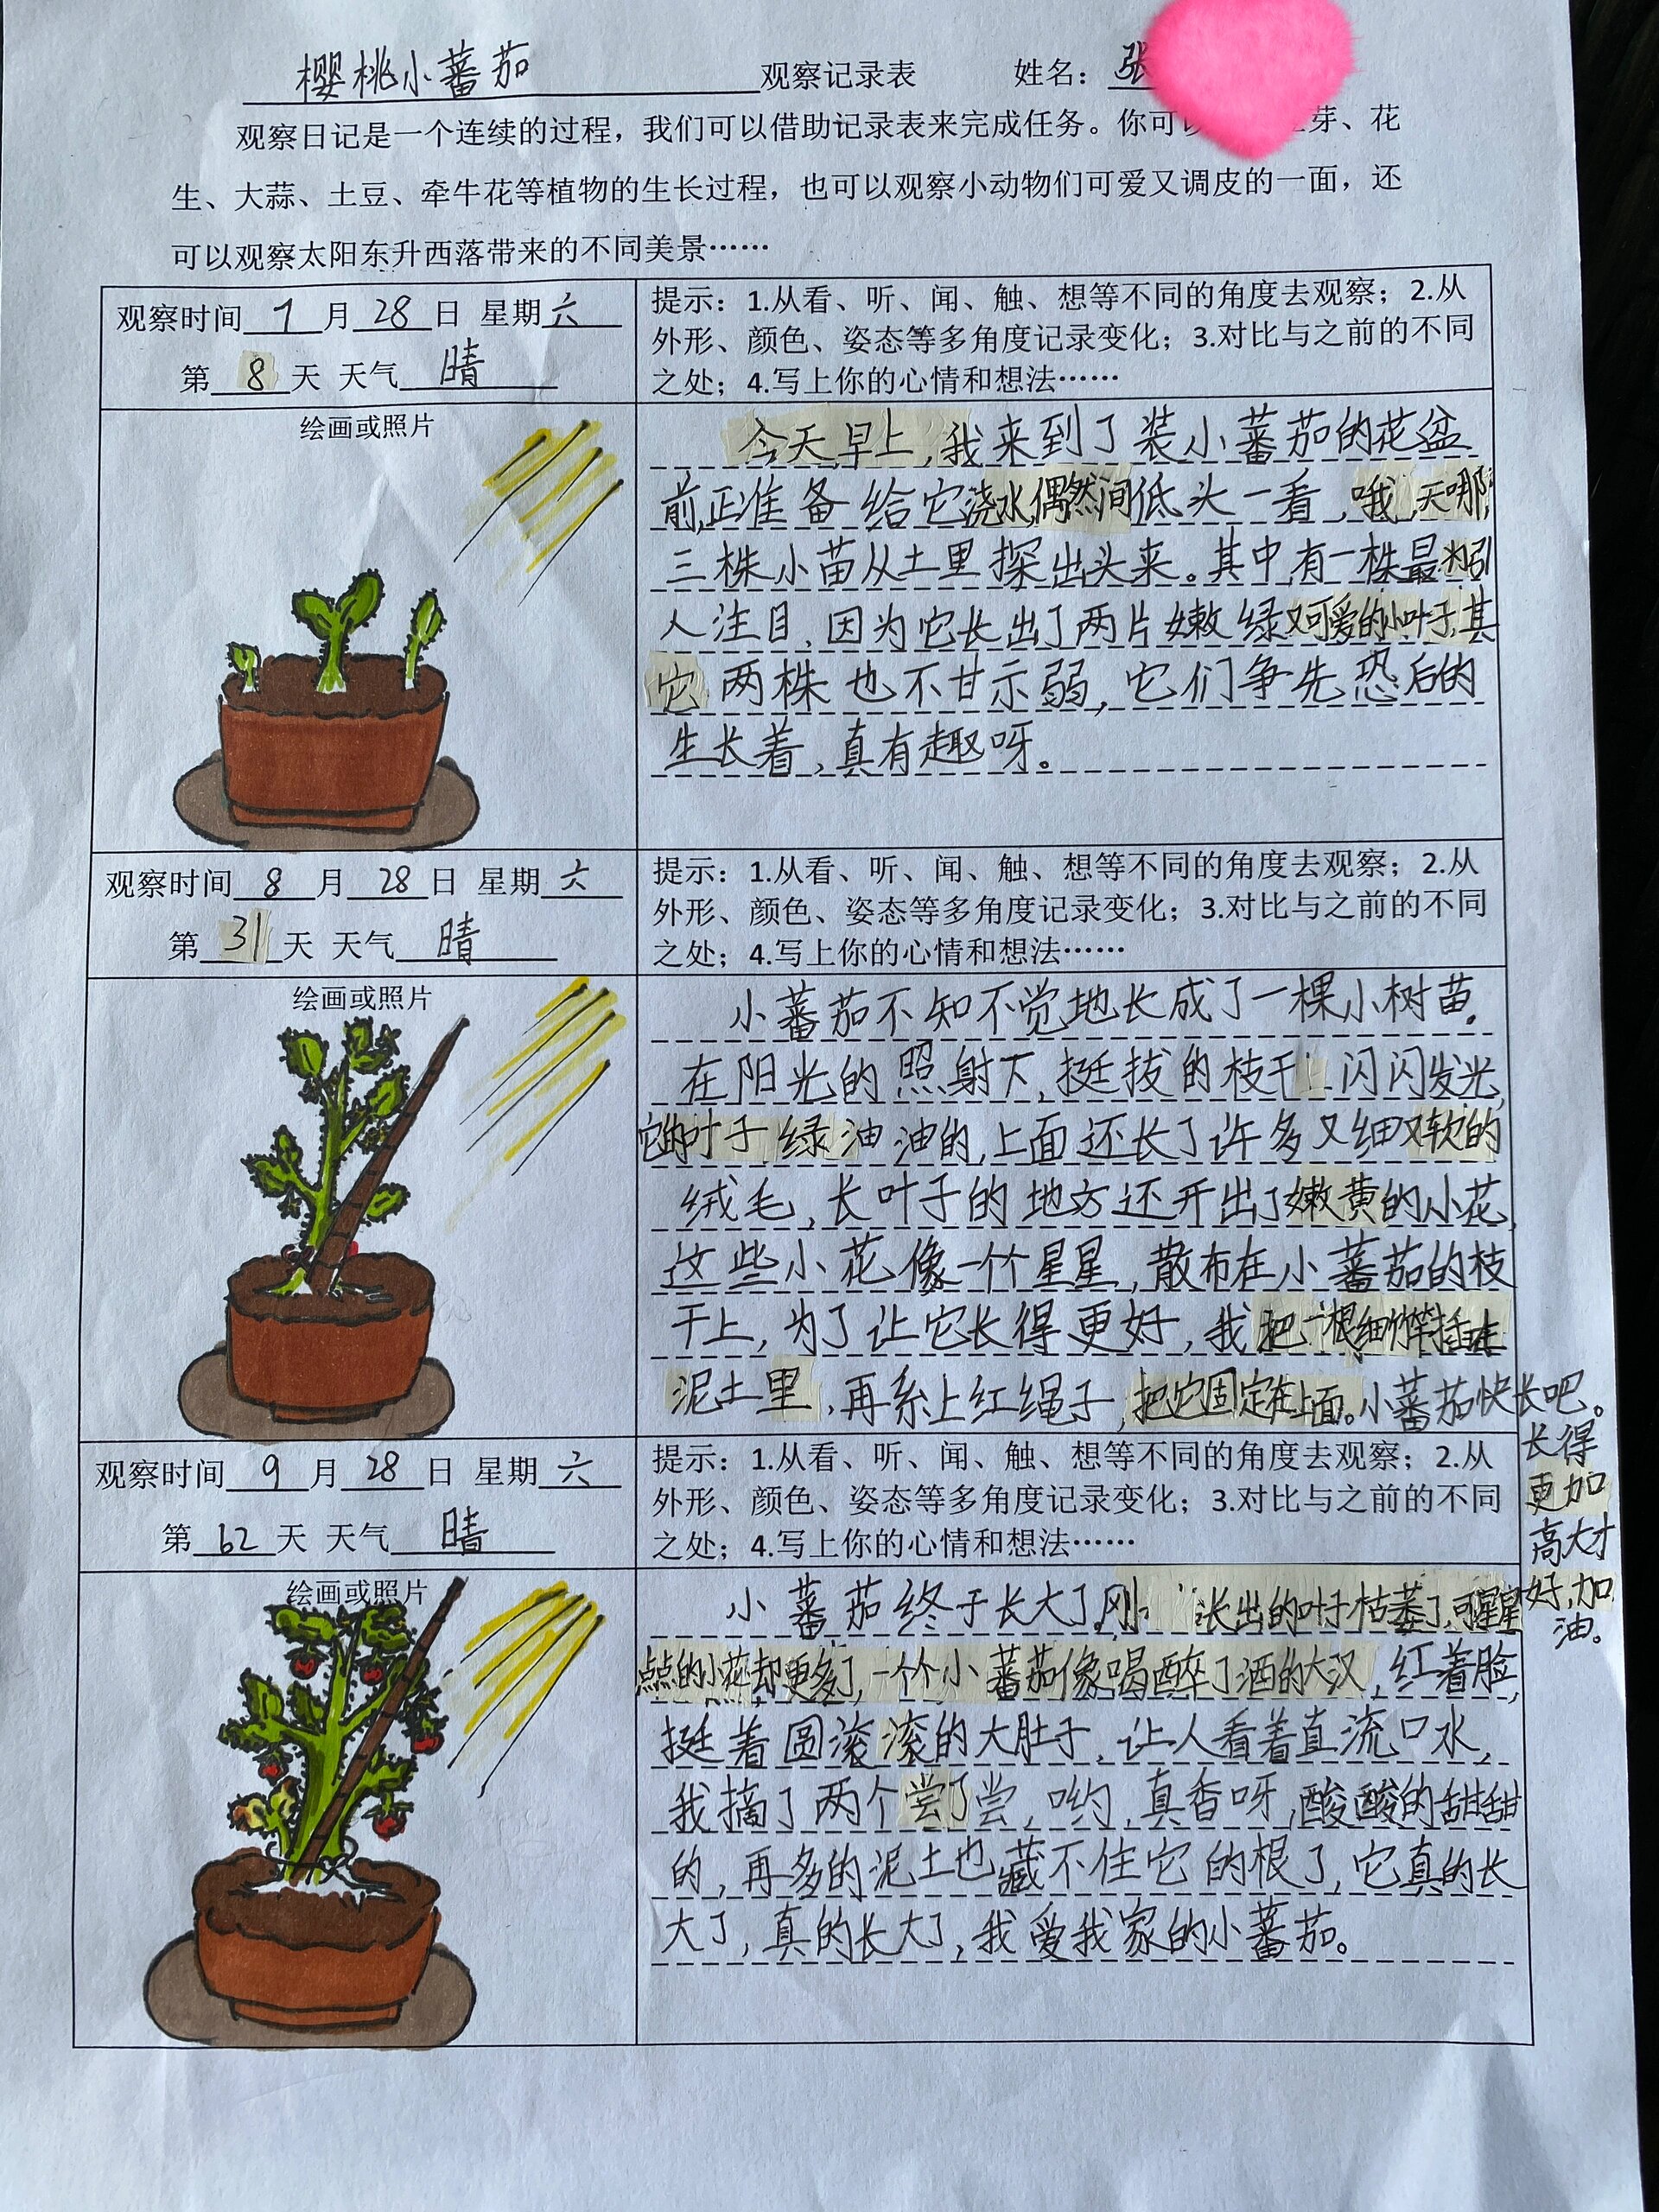 樱桃小蕃茄 观察记录表 姓名：张
观察日记是一个连续的过程，我们可以借助记录表来完成任务。你可 芽、花
生、大蒜、土豆、牵牛花等植物的生长过程，也可以观察小动物们可爱又调皮的一面，还
可以观察太阳东升西落带来的不同美景……
观察时间 7 月 28 日 星期六
第 8 天 天气 晴
提示：1.从看、听、闻、触、想等不同的角度去观察；2.从
外形、颜色、姿态等多角度记录变化；3.对比与之前的不同
之处；4.写上你的心情和想法……
绘画或照片
今天早上，我来到了装小蕃茄的花盆
前,正准备给它浇水,偶然间低头一看，哦,天哪,
三株小苗从土里探出头来。其中有一株最为引
人注目,因为它长出了两片嫩绿又可爱的小叶子,其
它两株也不甘示弱，它们争先恐后的
生长着，真有趣呀。
观察时间 8 月 28 日 星期六
第 31 天 天气 晴
提示：1.从看、听、闻、触、想等不同的角度去观察；2.从
外形、颜色、姿态等多角度记录变化；3.对比与之前的不同
之处；4.写上你的心情和想法……
绘画或照片
小蕃茄不知不觉地长成了一棵小树苗,
在阳光的照射下,挺拔的枝干上闪闪发光,
它的叶子绿油油的,上面还长了许多又细又软的
绒毛，长叶子的地方还开出了嫩黄的小花,
这些小花像一个个星星,散布在小蕃茄的枝
干上，为了让它长得更好，我把一根细竹竿插在
泥土里，再系上红绳子,把它固定在上面。小蕃茄快长吧。
长得
更加
高大才
好,加
油。
观察时间 9 月 28 日 星期六
第 62 天 天气 晴
提示：1.从看、听、闻、触、想等不同的角度去观察；2.从
外形、颜色、姿态等多角度记录变化；3.对比与之前的不同
之处；4.写上你的心情和想法……
绘画或照片
小蕃茄终于长大了,刚 长出的叶子枯萎了,可星星
点点的小花却更多了,一个个小蕃茄像喝醉了酒的大汉,红着脸,
挺着圆滚滚的大肚子,让人看着直流口水,
我摘了两个尝了尝,哟,真香呀,酸酸的甜甜
的,再多的泥土也藏不住它的根了,它真的长
大了,真的长大了,我爱我家的小蕃茄。